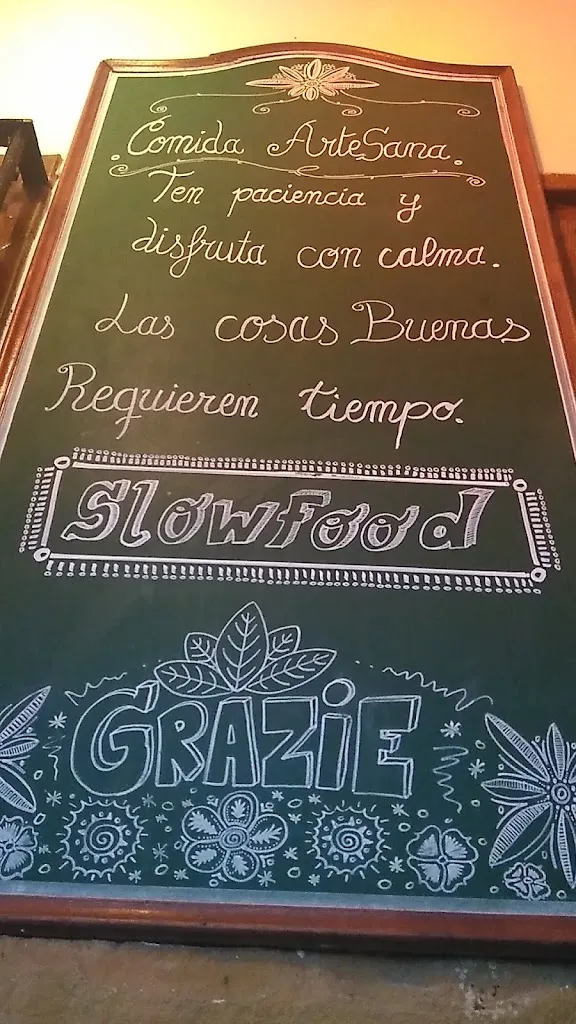 Comida ArteSana.
Ten paciencia y
disfruta con calma.
Las cosas Buenas
Requieren tiempo.
SlowFood
GRAZiE